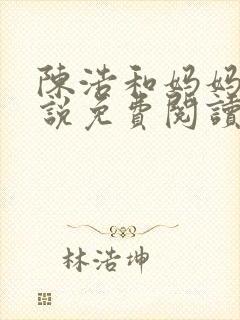 陳浩和妈妈
說免費閱讀
林浩坤